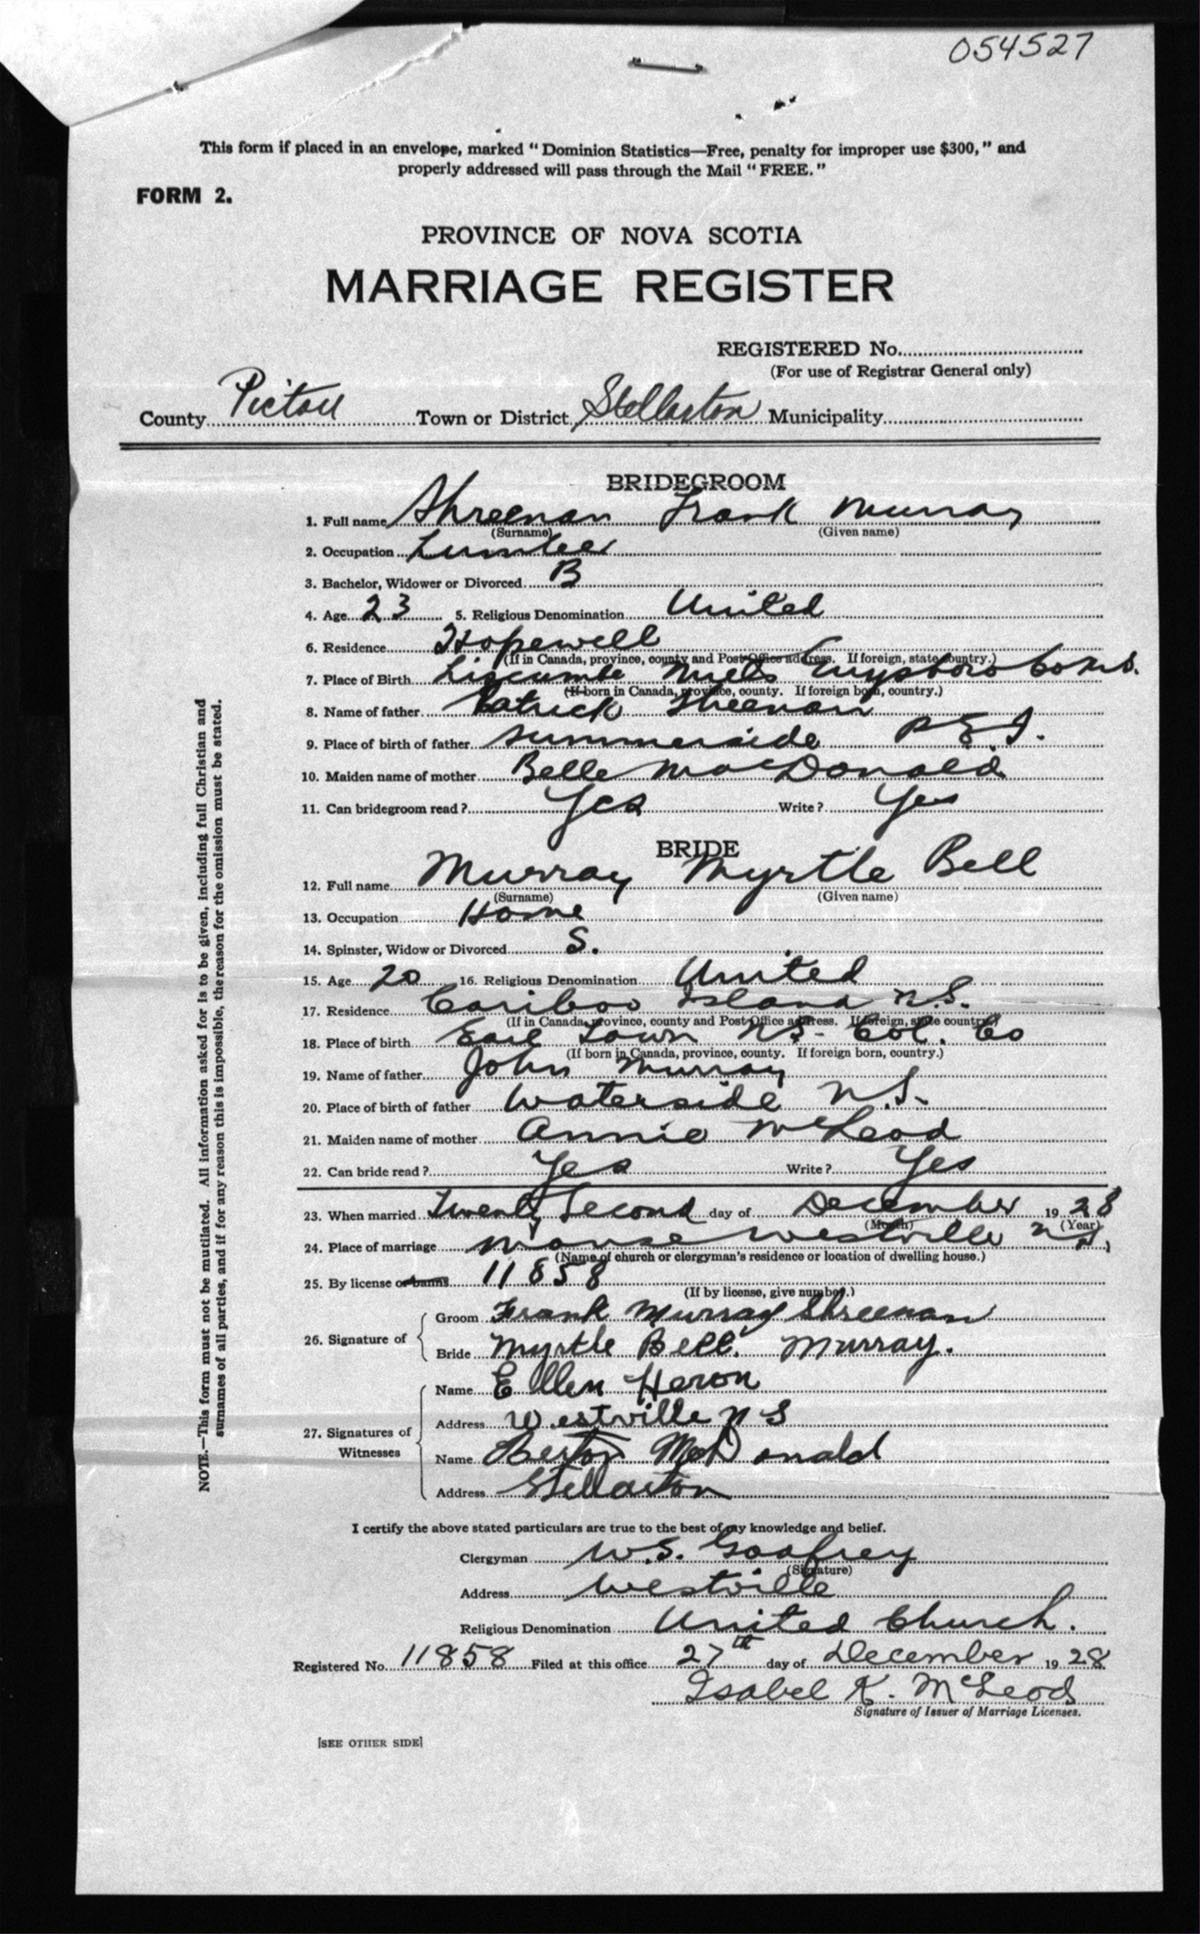 054527
This form if placed in an envelope, marked "Dominion Statistics—Free, penalty for improper use $300," and
properly addressed will pass through the Mail "FREE."
FORM 2.
PROVINCE OF NOVA SCOTIA
MARRIAGE REGISTER
REGISTERED No.
(For use of Registrar General only)
County Pictou Town or District Stellarton Municipality
BRIDEGROOM
1. Full name Shreenan Frank Murray
(Surname) (Given name)
2. Occupation Lumber
3. Bachelor, Widower or Divorced B
4. Age 23 5. Religious Denomination United
6. Residence Hopewell
(If in Canada, province, county and Post Office address. If foreign, state country.)
7. Place of Birth Liscumbe Mills Guysboro Co N.S.
(If born in Canada, province, county. If foreign born, country.)
8. Name of father Patrick Shreenan
9. Place of birth of father Summerside P.E.I.
10. Maiden name of mother Belle MacDonald
11. Can bridegroom read? Yes Write? Yes
BRIDE
12. Full name Murray Myrtle Bell
(Surname) (Given name)
13. Occupation Home
14. Spinster, Widow or Divorced S.
15. Age 20 16. Religious Denomination United
17. Residence Cariboo Island N.S.
(If in Canada, province, county and Post Office address. If foreign, state country.)
18. Place of birth Earl Town N.S. Col. Co
(If born in Canada, province, county. If foreign born, country.)
19. Name of father John Murray
20. Place of birth of father Waterside N.S.
21. Maiden name of mother Annie McLeod
22. Can bride read? Yes Write? Yes
23. When married Twenty Second day of December 1928
(Month) (Year)
24. Place of marriage Manse Westville N.S.
(Name of church or clergyman's residence or location of dwelling house.)
25. By license or banns 11858
(If by license, give number.)
26. Signature of Groom Frank Murray Shreenan
Bride Myrtle Bell Murray.
27. Signatures of Witnesses Name Ellen Heron
Address Westville N S
Name McDonald
Address Stellarton
I certify the above stated particulars are true to the best of my knowledge and belief.
Clergyman W.S. Godfrey
(Signature)
Address Westville
Religious Denomination United Church.
Registered No. 11858 Filed at this office 27th day of December 1928
Isabel K. McLeod
Signature of Issuer of Marriage Licenses.
[SEE OTHER SIDE]
NOTE.—This form must not be mutilated. All information asked for is to be given, including full Christian and
surnames of all parties, and if for any reason this is impossible, the reason for the omission must be stated.